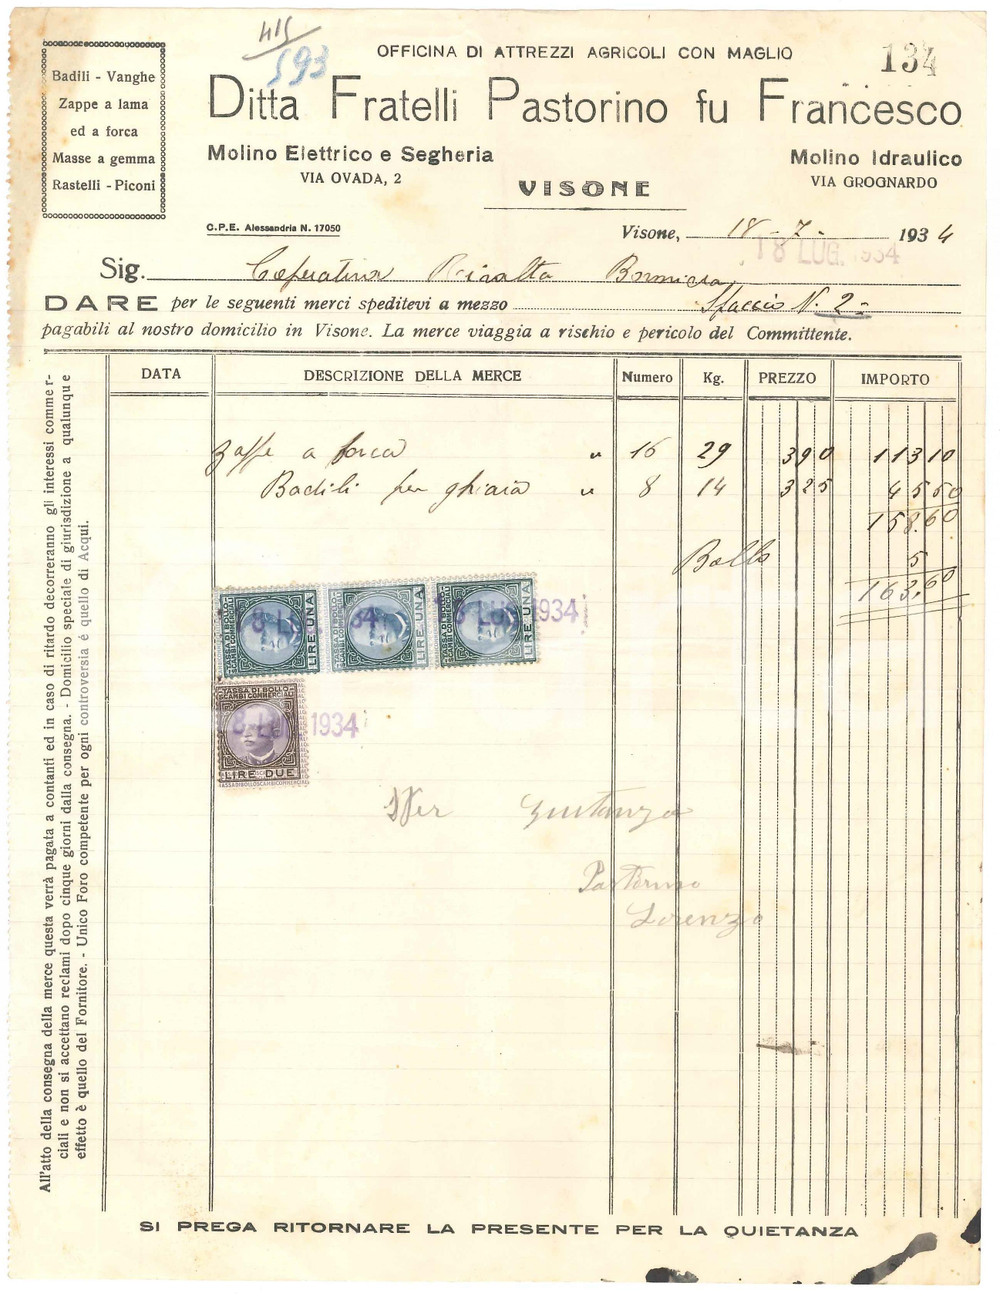 415
593
OFFICINA DI ATTREZZI AGRICOLI CON MAGLIO
134
Badili - Vanghe
Zappe a lama
ed a forca
Masse a gemma
Rastelli - Piconi
Ditta Fratelli Pastorino fu Francesco
Molino Elettrico e Segheria
VIA OVADA, 2
Molino Idraulico
VIA GROGNARDO
VISONE
C.P.E. Alessandria N. 17050
Visone, 18 - 7 - 1934
18 LUG. 1934
Sig. Coperativa Rivalta Bormida
DARE per le seguenti merci speditevi a mezzo Spaccio N. 2 -
pagabili al nostro domicilio in Visone. La merce viaggia a rischio e pericolo del Committente.
DATA DESCRIZIONE DELLA MERCE Numero Kg. PREZZO IMPORTO
Zappe a forca " 16 29 390 11310
Badili per ghiaia " 8 14 325 4550
158.60
Bollo 5
163.60
TASSA DI BOLLO SCAMBI COMMERCIALI LIRE UNA
TASSA DI BOLLO SCAMBI COMMERCIALI LIRE UNA
TASSA DI BOLLO SCAMBI COMMERCIALI LIRE UNA
8 LUG 1934
TASSA DI BOLLO
SCAMBI COMMERCIALI
8 LUG 1934
LIRE DUE
TASSA DI BOLLO SCAMBI COMMERCIALI
Per Quietanza
Pastorino
Lorenzo
All'atto della consegna della merce questa verrà pagata a contanti ed in caso di ritardo decorreranno gli interessi commer-
ciali e non si accettano reclami dopo cinque giorni dalla consegna. - Domicilio speciale di giurisdizione a qualunque
effetto è quello del Fornitore. - Unico Foro competente per ogni controversia é quello di Acqui.
SI PREGA RITORNARE LA PRESENTE PER LA QUIETANZA